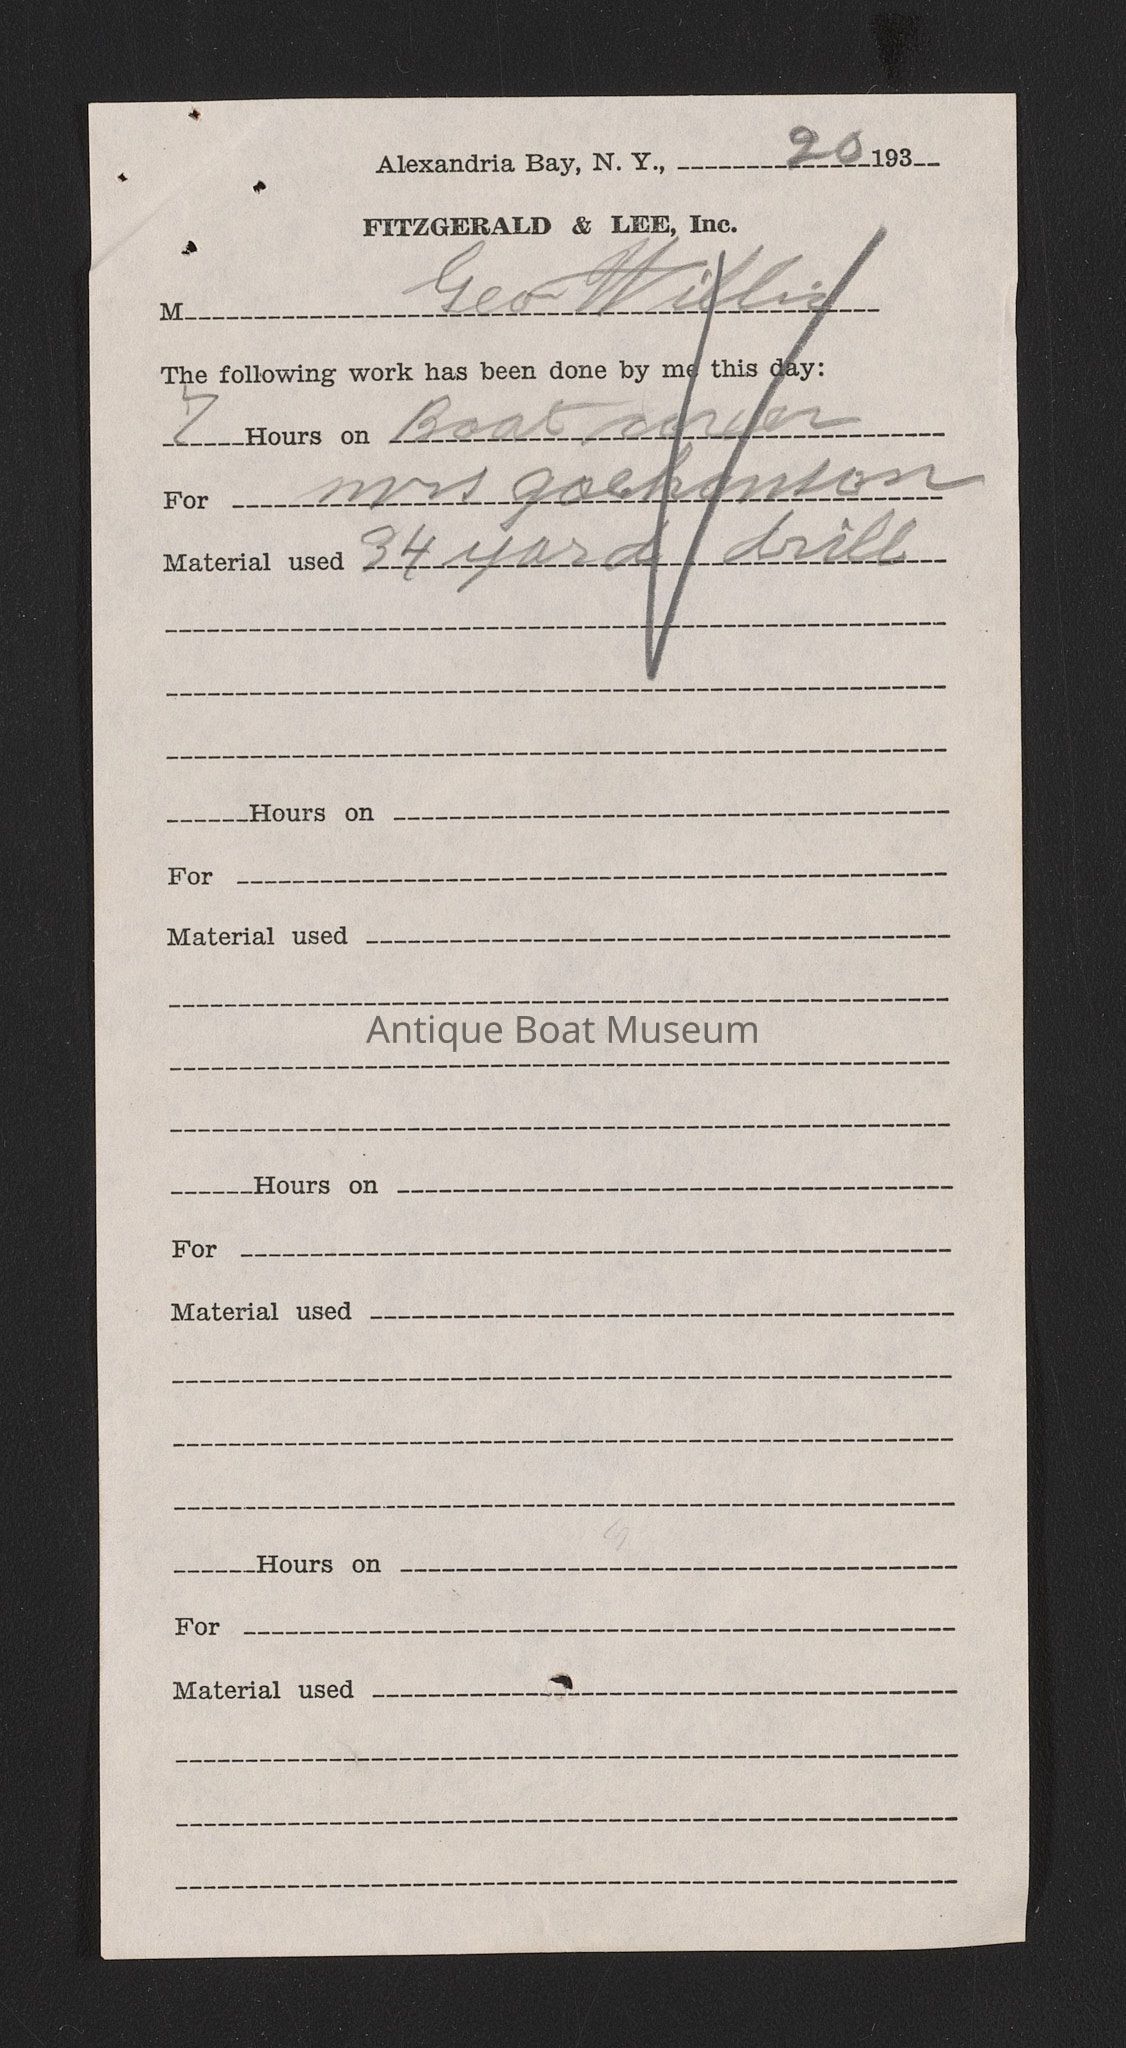 Alexandria Bay, N. Y., 20 193
FITZGERALD & LEE, Inc.
M Geo Willis
The following work has been done by me this day:
7 Hours on Boat cover
For mrs
Material used 34 yard drill
Hours on
For
Material used
Antique Boat Museum
Hours on
For
Material used
Hours on
For
Material used